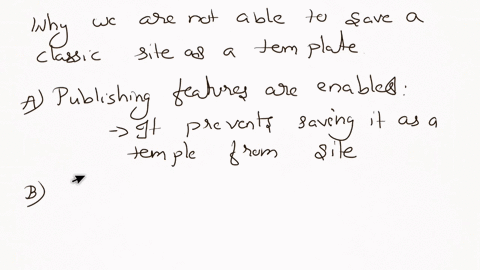 Why we are not able to save a
classic site as a template
A) Publishing features are enabled:
→ It prevents saving it as a
temple from site
B)